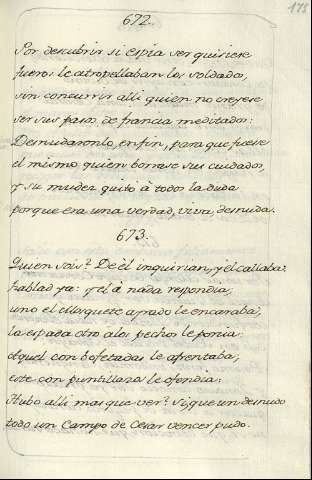 178
672.
Por descubrir si espia ser quisiese
fueros le atropellaban los soldados,
sin concurrir alli quien no creyese
ser sus pasos de francia meditados:
Desnudaronlo, enfin, para que fuese
el mismo quien borrase sus cuidados,
y su mudez quitò à todo la duda
porque era una verdad, viva, desnuda.
673.
Quien sois? De èl inquirian, y èl callaba:
hablad ya: y el à nada respondia;
uno el Mosquete ayrado le encaraba;
la espada otro a los pechos le ponia;
Aquel con bofetadas le afrentaba;
este con puntillazos le ofendia:
Hubo alli mas que ver? Si, que un desnudo
todo un Campo de Cesar vencer pudo.